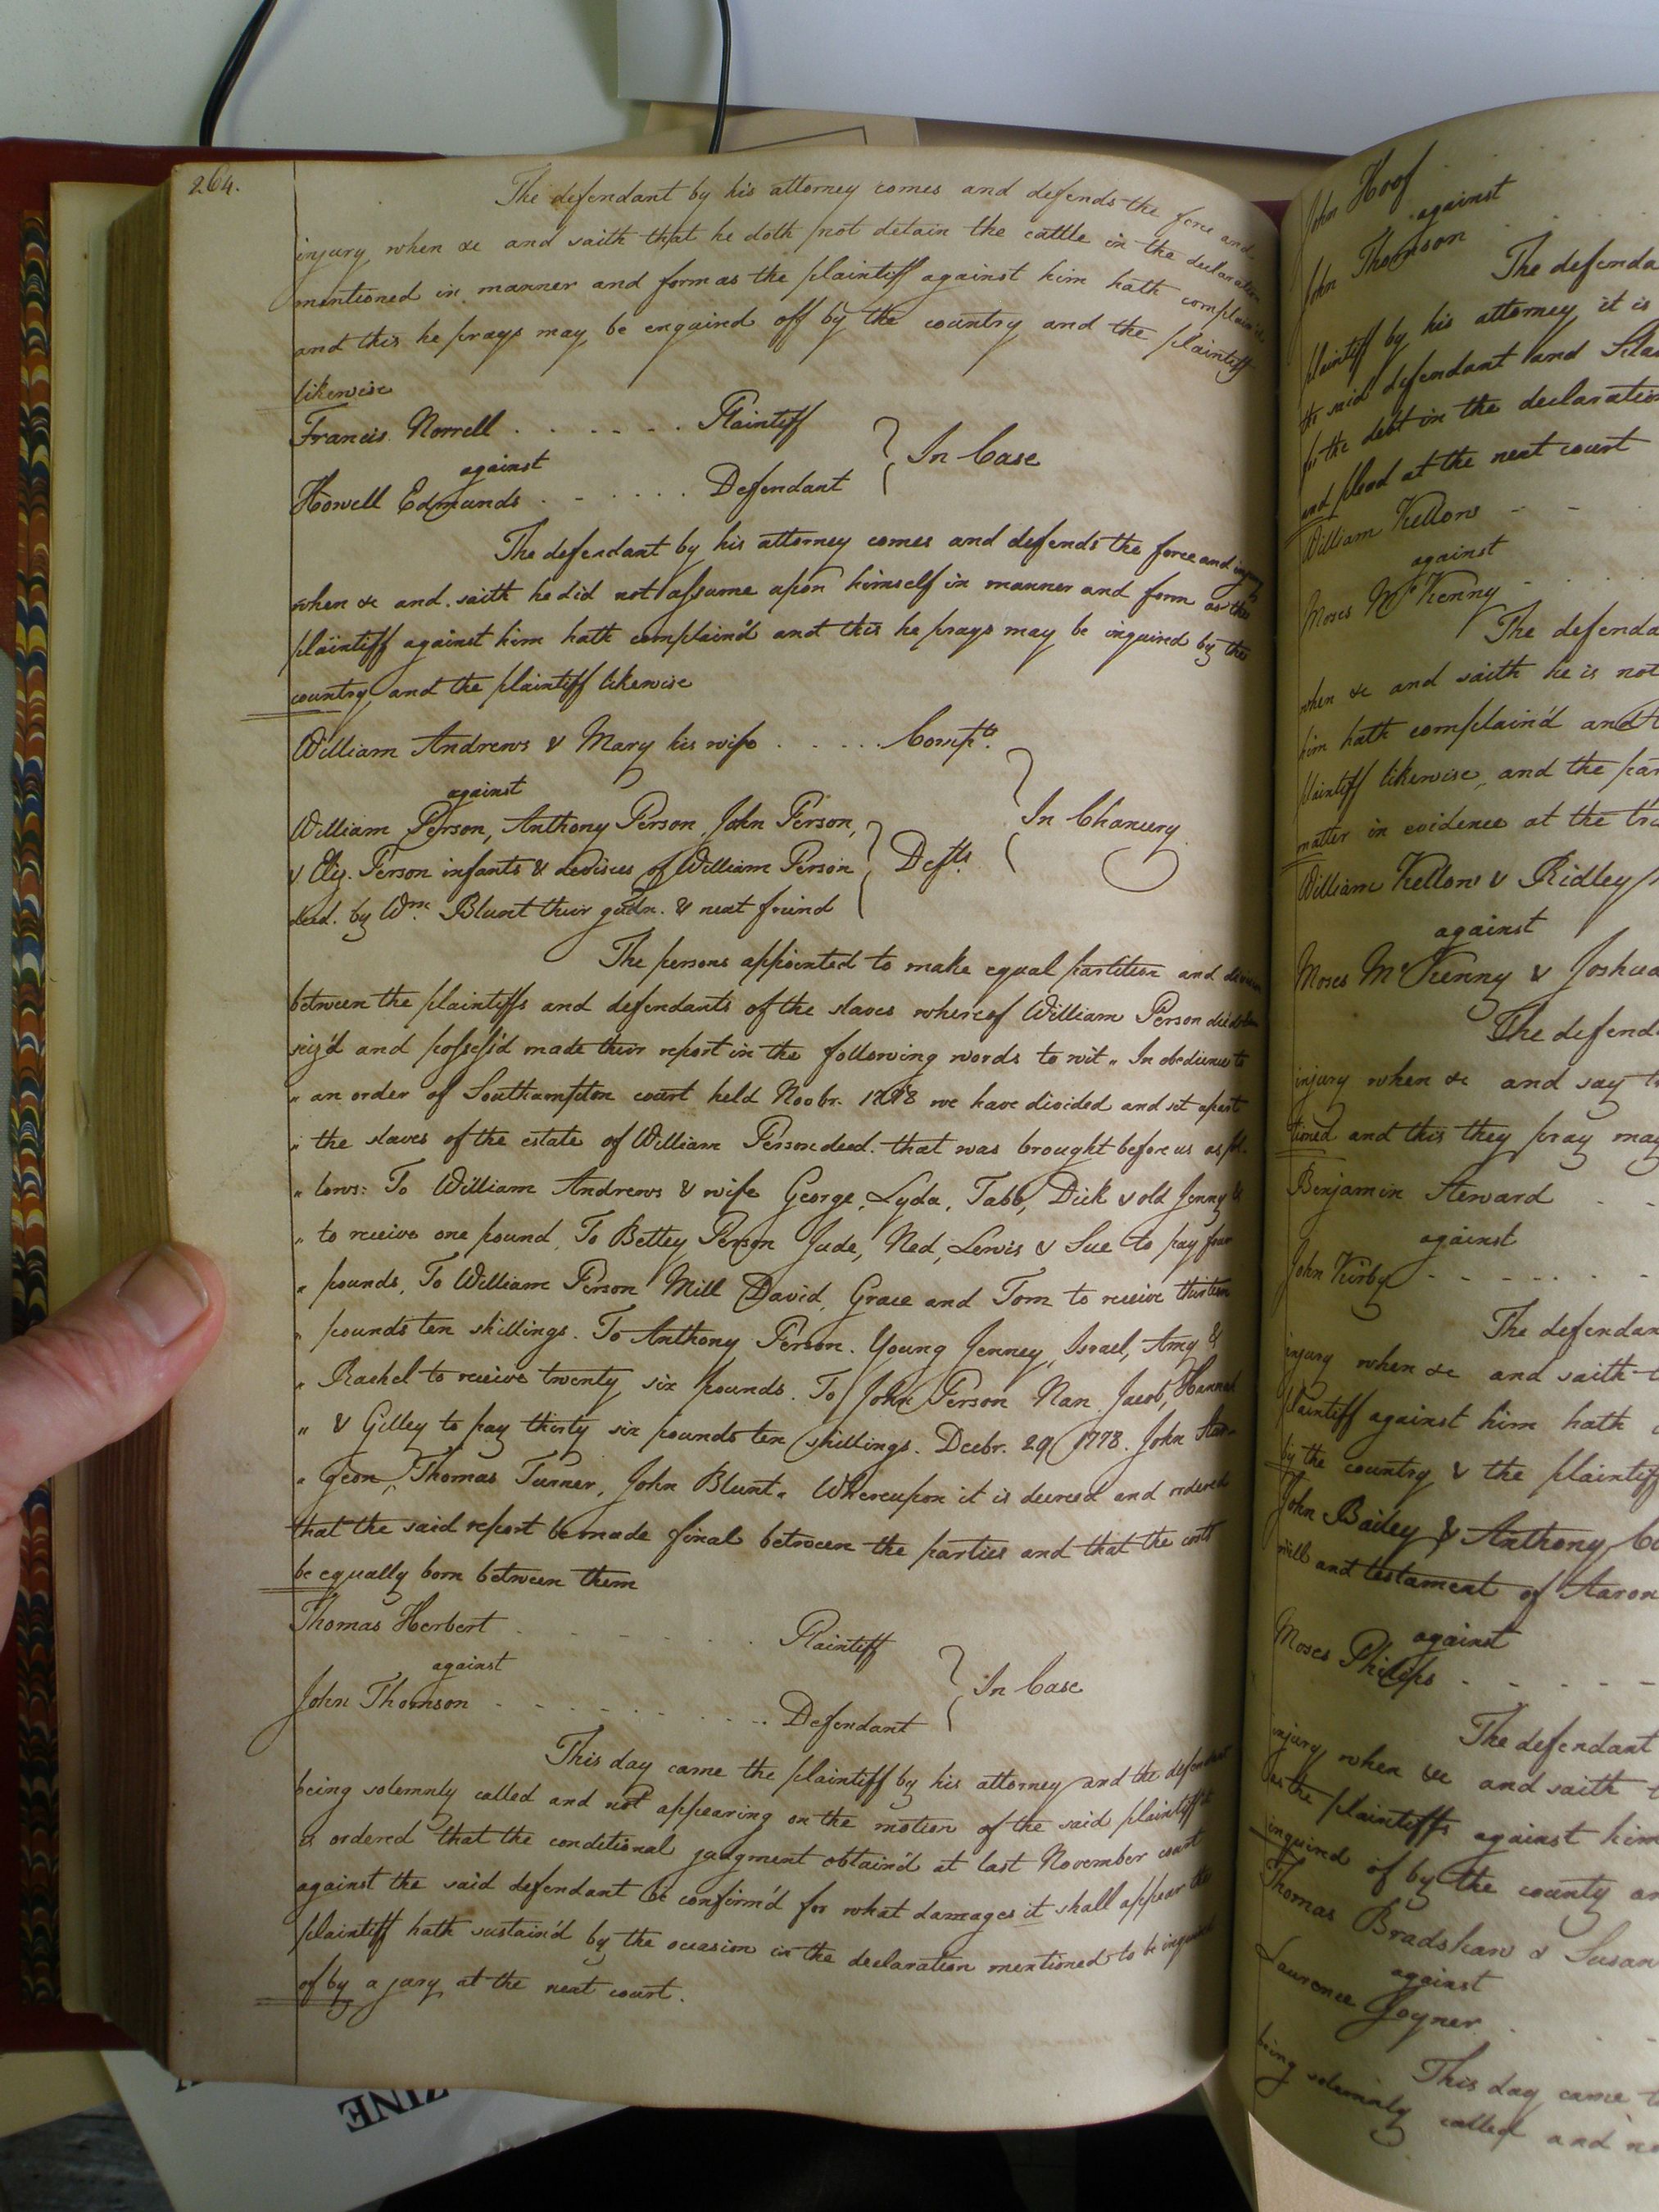 264.
The defendant by his attorney comes and defends the force and
injury when &c and saith that he doth not detain the cattle in the declaration
mentioned in manner and form as the plaintiff against him hath complain'd
and this he prays may be enquired off by the country and the plaintiff
likewise
Francis Norrell . . . . . . Plaintiff
against
Howell Edmunds . . . . . . Defendant
In Case
The defendant by his attorney comes and defends the force and injury
when &c and saith he did not assume upon himself in manner and form as the
plaintiff against him hath complain'd and this he prays may be inquired by the
country and the plaintiff likewise
William Andrews & Mary his wife . . . . . Compts.
against
William Person, Anthony Person, John Person,
& Eliz. Person infants & devisees of William Person
decd. by Wm. Blunt their gudn. & next friend
Defts.
In Chancery
The persons appointed to make equal partition and division
between the plaintiffs and defendants of the slaves whereof William Person died
seiz'd and possess'd made their report in the following words to wit " In obedience to
" an order of Southampton court held Novbr. 1778 we have divided and set apart
" the slaves of the estate of William Person decd. that was brought before us as fol-
" lows: To William Andrews & wife George, Lyda, Tabb, Dick & old Jenny &
" to receive one pound, To Bettey Person Jude, Ned, Lewis & Sue to pay four
" pounds, To William Person Mill David, Grace and Tom to receive thirteen
" pounds ten shillings. To Anthony Person. Young Jenney, Israel, Amy &
" Rachel to receive twenty six pounds. To John Person Nan, Jacob, Hannah
" & Gilley to pay thirty six pounds ten shillings. Decbr. 29 1778. John Stur-
" geon, Thomas Turner, John Blunt " Whereupon it is decreed and ordered
that the said report be made final between the parties and that the costs
be equally born between them
Thomas Herbert . . . . . . Plaintiff
against
John Thomson . . . . . . . . Defendant
In Case
This day came the plaintiff by his attorney and the defendant
being solemnly called and not appearing on the motion of the said plaintiff it
is ordered that the conditional judgment obtain'd at last November court
against the said defendant be confirm'd for what damages it shall appear the
plaintiff hath sustain'd by the occasion in the declaration mentioned to be inquired
of by a jury at the next court.
John Hoof
against
John Thomson
The defenda
plaintiff by his attorney it is
the said defendant and
for the debt in the declaration
and plead at the next court
William Kellow - -
against
Moses McKenny - . .
The defenda
when &c and saith he is not
him hath complain'd and
plaintiff likewise, and the par
matter in evidence at the
William Kellow & Ridley
against
Moses McKenny & Joshua
The defend
injury when &c and say
tioned and this they pray may
Benjamin Steward - -
against
John Kirby - - - - - -
The defendan
injury when &c and saith
plaintiff against him hath
by the country & the plaintiff
John Bailey & Anthony
will and testament of Aaron
against
Moses Philips - - - - -
The defendant
injury when &c and saith
as the plaintiffs against him
inquired of by the county
Thomas Bradshaw & Susan
against
Laurence Joyner
This day came
being solemnly called and
ZINE